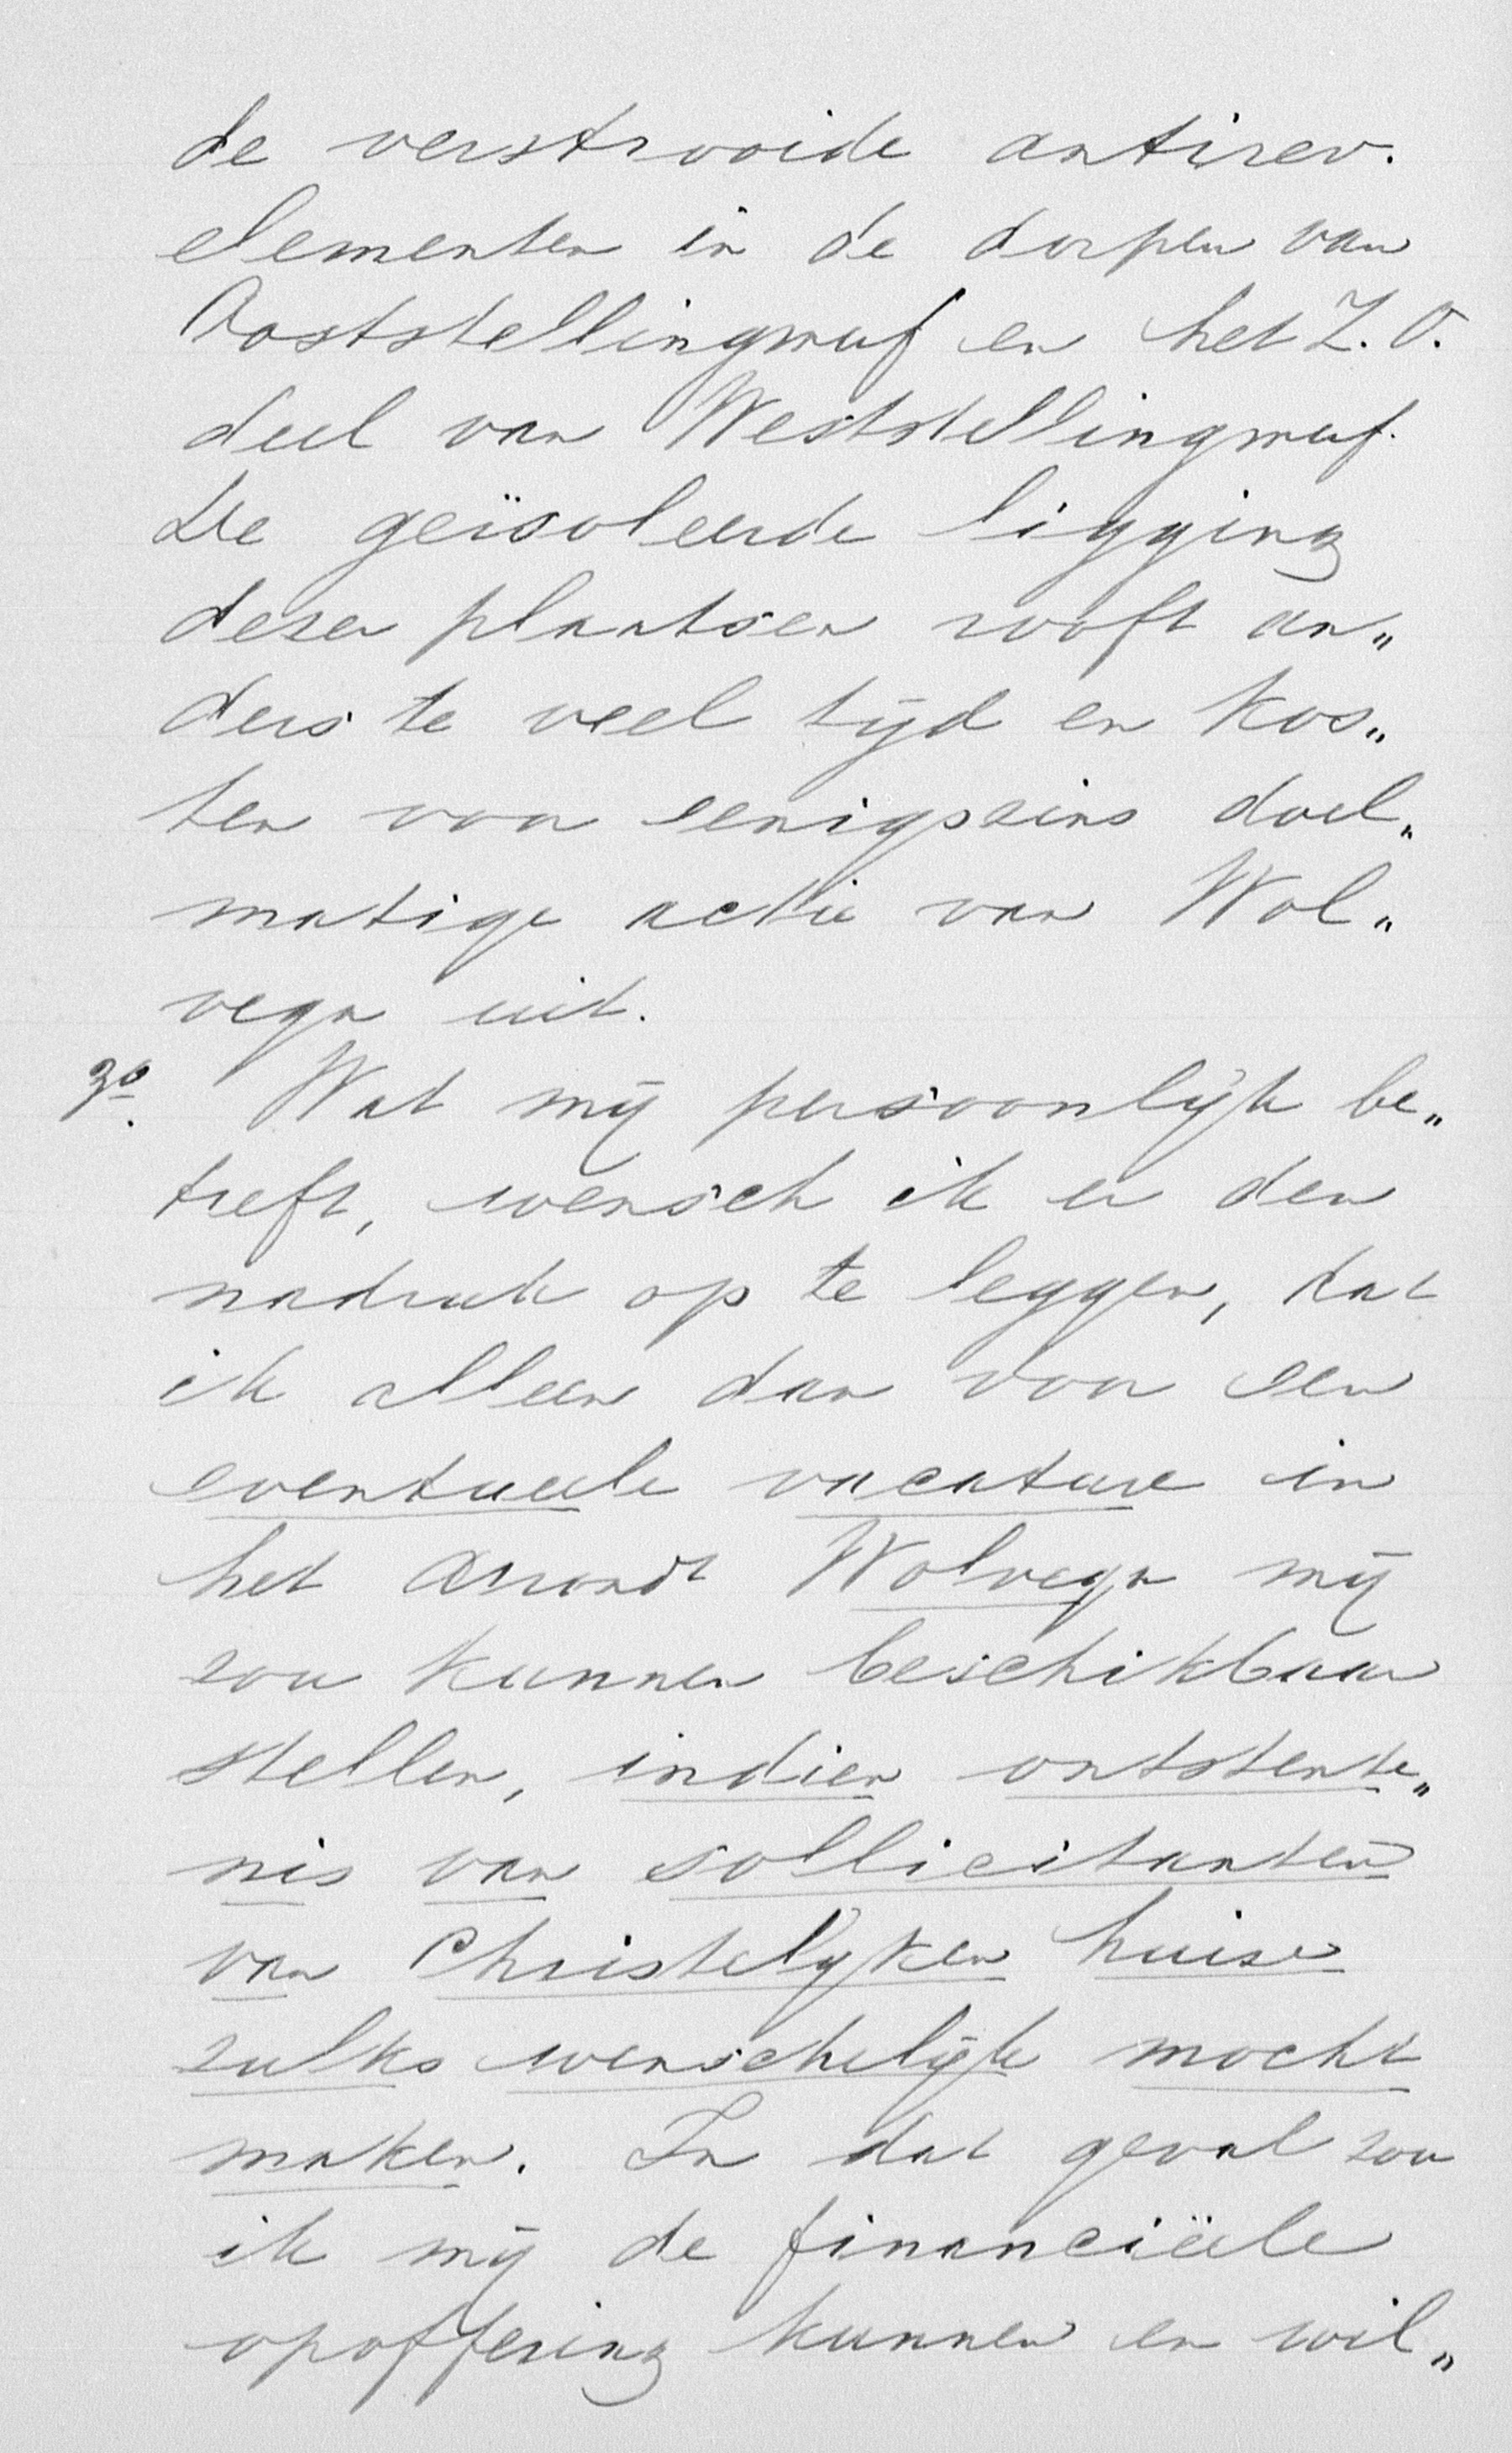 de verstrooide antirev.
elementen in de dorpen van
Ooststellingwerf en het Z.O.
deel van Weststellingwerf.
De geïsoleerde ligging
dezer plaatsen rooft an„
ders te veel tijd en kos„
ten voor eenigszins doel„
matige actie van Wol„
vega uit.
3º. Wat mij persoonlijk be„
treft, wensch ik er den
nadruk op te leggen, dat
ik alleen dan voor een
eventueele vacature in
het Arrondt Wolvega mij
zou kunnen beschikbaar
stellen, indien ontstente„
nis van sollicitanten
van Christelijken huize
zulks wenschelijk mocht
maken. In dat geval zou
ik mij de financiëele
opoffering kunnen en wil„